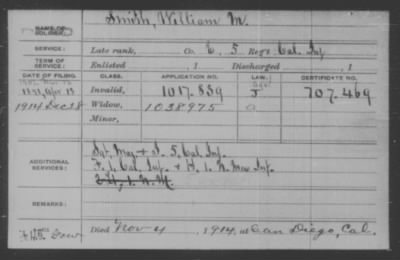 Smith, William M.
NAME OF SOLDIER:
SERVICE: Late rank, Co. E, 5 Reg't Cal. Inf.
TERM OF SERVICE: Enlisted , 1 Discharged , 1
DATE OF FILING. CLASS. APPLICATION NO. LAW. CERTIFICATE NO.
Invalid, 1017.839 707.469
1914 Dec 18 Widow, 1038975 a
Minor,
ADDITIONAL SERVICES: Sgt. Maj. + I. 5. Cal. Inf.
F. 1. Cal. Inf. + H. 1. N. Mex Inf.
REMARKS:
Died Nov 4, 1914, at San Diego, Cal.